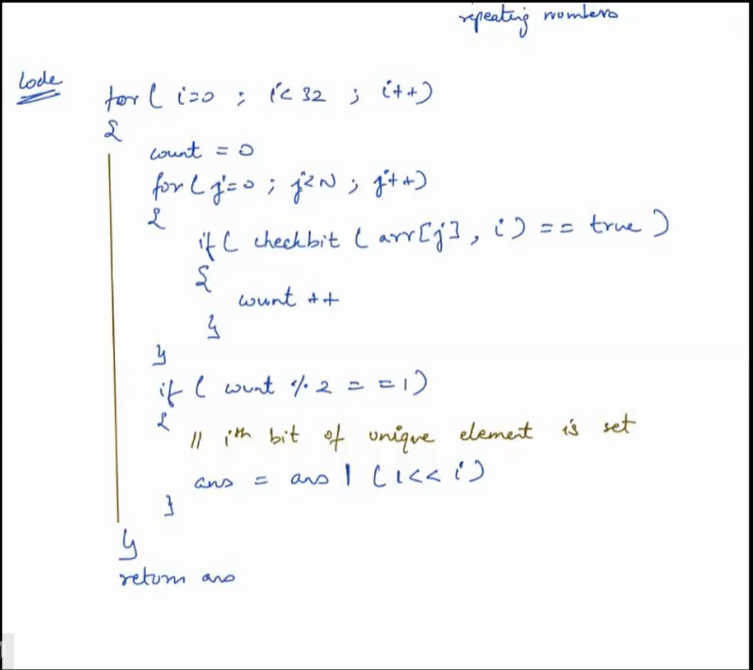 repeating numbers
Code
for ( i=0 ; i< 32 ; i++)
{
count = 0
for ( j=0 ; j<N ; j++)
{
if ( checkbit ( arr[j] , i ) == true )
{
count ++
}
}
if ( count % 2 = =1)
{
// ith bit of unique element is set
ans = ans | (1<< i)
}
}
return ans